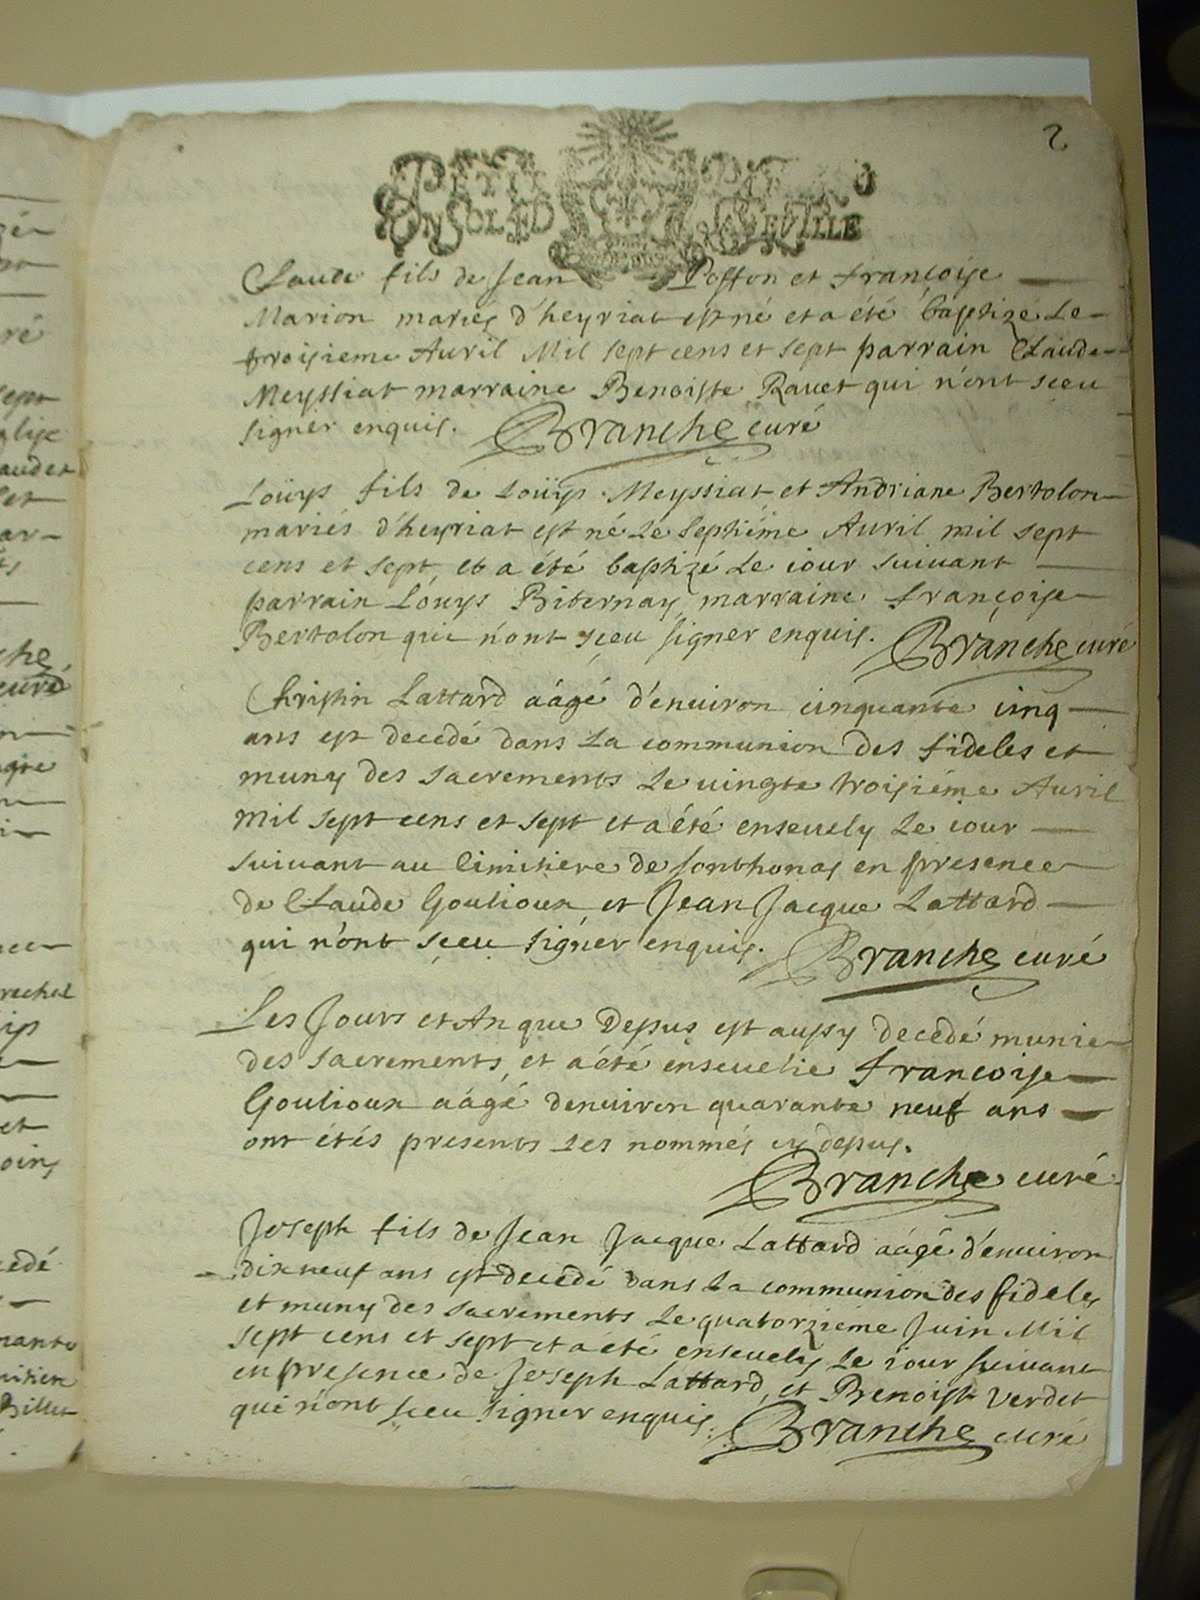 2
PETIT PAPIER
UN SOL LE
Claude fils de Jean Poffon et françoise
Marion mariés d'heyriat est né et a été baptizé Le
troisieme Auril Mil sept cens et sept parrain Claude
Meyssiat marraine Benoiste Rauet qui n'ont sceu
signer enquis. Branche curé
Loüys fils de Loüys Meyssiat et Andriane Bertolon
mariés d'heyriat est né Le septiéme Auril mil sept
cens et sept, et a été baptizé Le iour suiuant
parrain Loüys Bibernay, marraine françoise
Bertolon qui n'ont sçeu signer enquis. Branche curé
Christin Lattard aágé d'enuiron cinquante cinq
ans est decedé dans La communion des fideles et
muny des sacrements Le uingte troisiéme Auril
Mil sept cens et sept et a été enseuely Le iour
suiuant au Cimitiere de sonthonas en presence
de Claude Goulioux et Jean Jacque Lattard
qui n'ont sçeu signer enquis. Branche curé
Les Jours et An que Depus est aussy decedé munie
des sacrements, et a été enseuelie françoise
Goulioux aágé denuiron quarante neuf ans
ont étés presents Les nommés cy depus.
Branche curé
Joseph fils de Jean Jacque Lattard aágé d'enuiron
dix neuf ans est decedé dans La communion des fideles
et muny des sacrements Le quatorziéme Juin Mil
sept cens et sept et a été enseuely Le iour suiuant
en presence de Joseph Lattard, et Benoist Verdet
qui n'ont sceu signer enquis. Branche curé